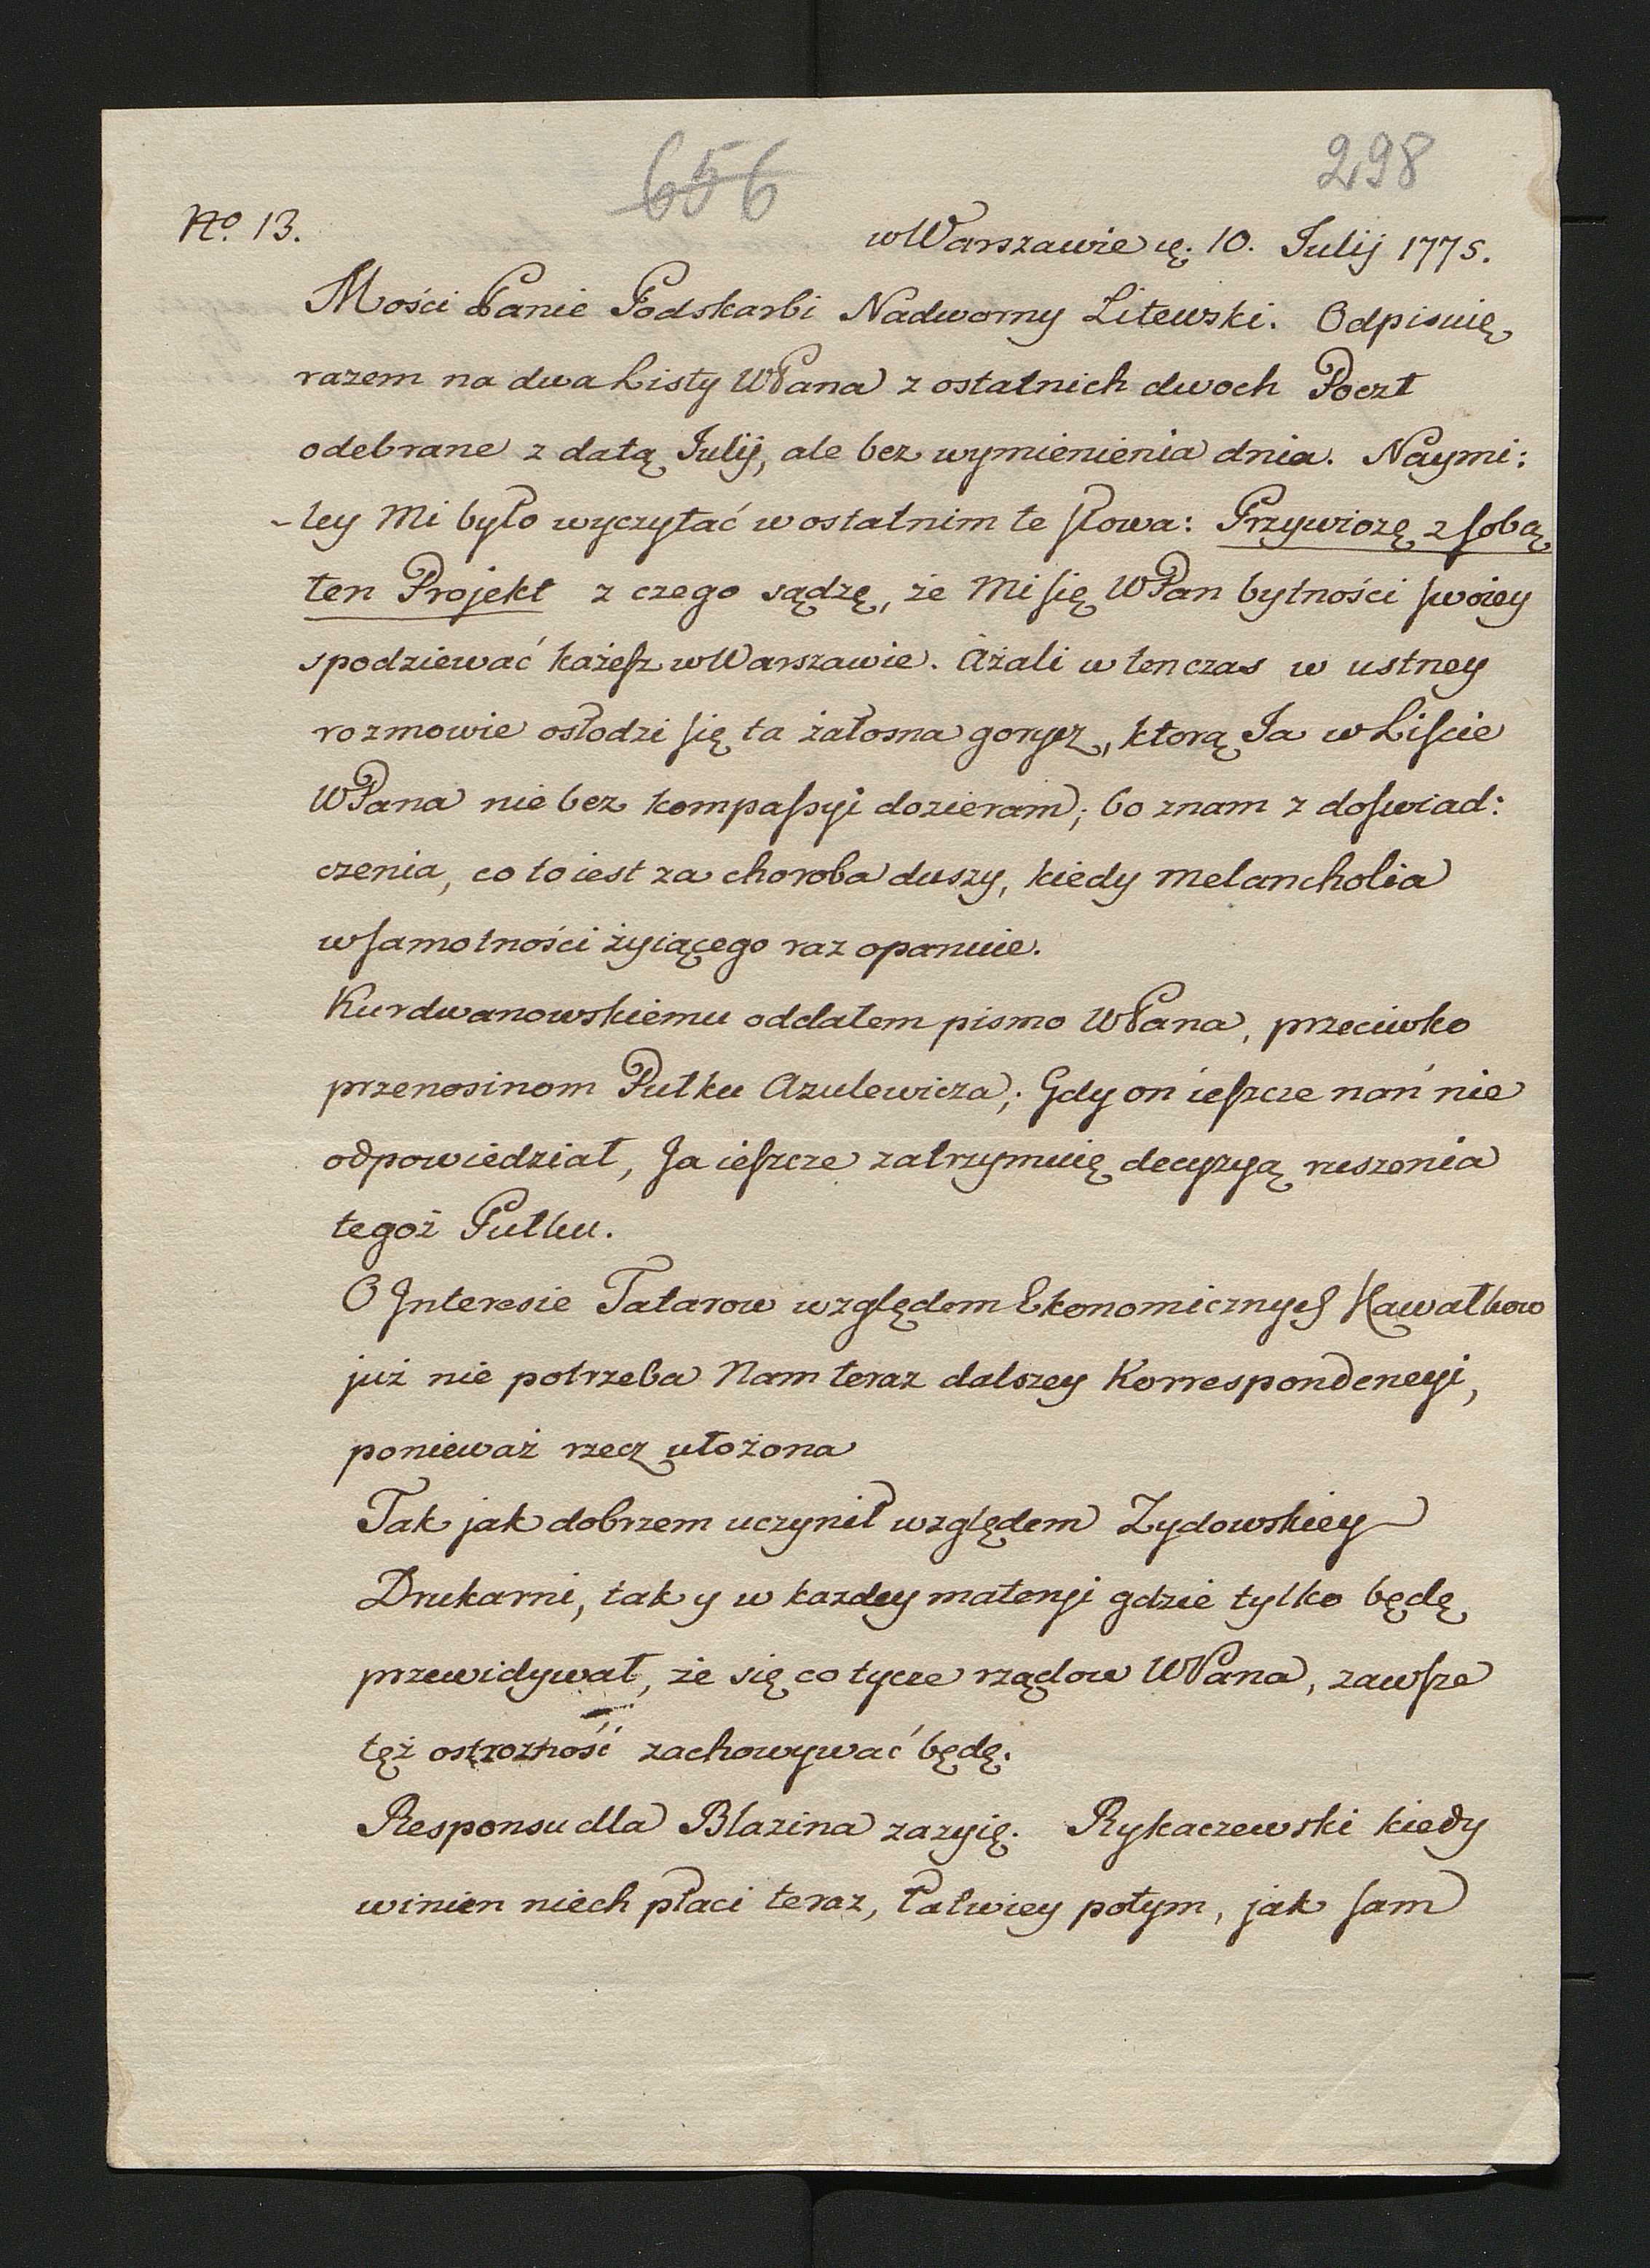 656
298
No. 13.
w Warszawie ię. 10. Julij 1775.
Mości Panie Podskarbi Nadworny Litewski. Odpisuię
razem na dwa Listy WPana z ostatnich dwoch Poczt
odebrane z datą Julij, ale bez wymienienia dnia. Naymi:
-ley Mi było wyczytać w ostatnim te słowa: Przywiozę z sobą
ten Projekt z czego sądzę, że Mi się WPan bytności swoiey
spodziewać każesz w Warszawie. Ażali w ten czas w ustney
rozmowie osłodzi się ta żałosna gorycz, ktorą Ja w Liście
WPana nie bez kompassyi dozieram; bo znam z doswiad:
czenia, co to iest za choroba duszy, kiedy melancholia
w samotności żyiącego raz opanuie.
Kurdwanowskiemu oddałem pismo WPana, przeciwko
przenosinom Pułku Azulewicza; Gdy on ieszcze nań nie
odpowiedział, Ja ieszcze zatrzymuię decyzyą ruszenia
tegoż Pułku.
O Interesie Tatarow względem Ekonomicznych Kawałkow
już nie potrzeba Nam teraz dalszey Korrespondencyi,
ponieważ rzecz ułożona
Tak jak dobrzem uczynił względem Zydowskiey
Drukarni, tak y w kazdey materyi gdzie tylko będę
przewidywał, że się co tycze rządow WPana, zawsze
tęż ostrozność zachowywać będę.
Responsu dla Blazina zazyię. Rykaczewski kiedy
winien niech płaci teraz, łatwiey potym, jak sam